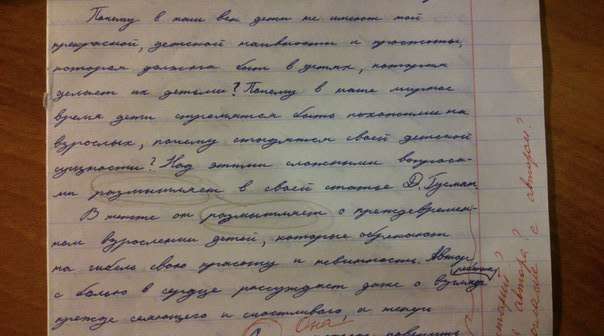 Почему в наш век дети не имеют той
прекрасной, детской наивности и простоты,
которая должна быть в детях, которая
делает их детьми? Почему в наше мирное
время дети стремятся быть похожими на
взрослых, почему стыдятся своей детской
сущности? Над этими сложными вопроса-
ми размышляет в своей статье Д. Гусман
В тексте он размышляет о преждевремен-
ном взрослении детей, которые обрекают
на гибель свою красоту и невинность. Автор
с болью в сердце рассуждает даже о взгляде
ребёнка
прежде сияющего и счастливого, а теперь
Она
автора?
с автором?